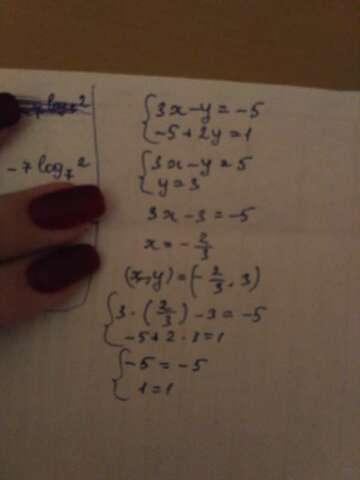 -7 log₇2
3x-y=-5
-5+2y=1
3x-y=5
y=3
3x-3=-5
x=-2/3
(x,y)=(-2/3,3)
3·(2/3)-3=-5
-5+2·3=1
-5=-5
1=1